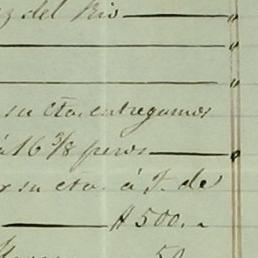 z del Rio
su cta. entregamos
á 16 3/8 pesos
r su cta. á F. de
# 500.
50